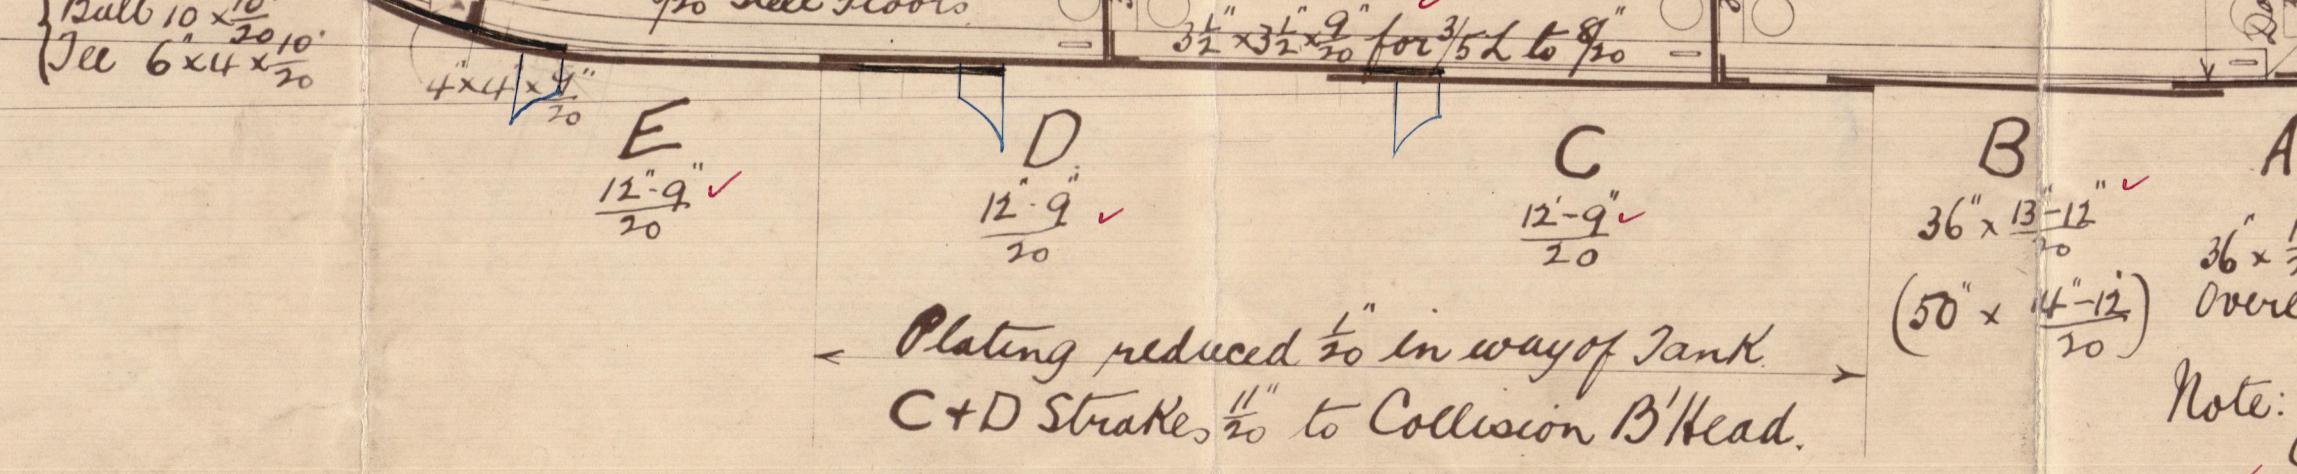 Bulb 10 × 10/20
Tee 6" × 4 × 10/20
Steel Floors
3½" × 3½" × 9/20 for 3/5 L to 8/20"
4" × 4" × 9/20"
E
12"-9"/20
D
12"-9"/20
C
12"-9"/20
B
36" × 13"-12"/20
(50" × 14"-12"/20)
A
36" ×
Plating reduced 1/20" in way of Tank.
C + D Strakes 11/20" to Collision B'Head.
Note: